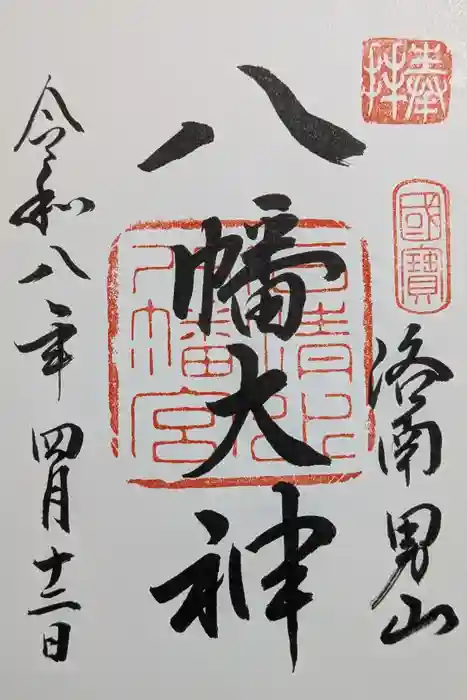 奉拝
國寶
洛南男山
八幡大神
石清水八幡宮
令和八年四月十二日